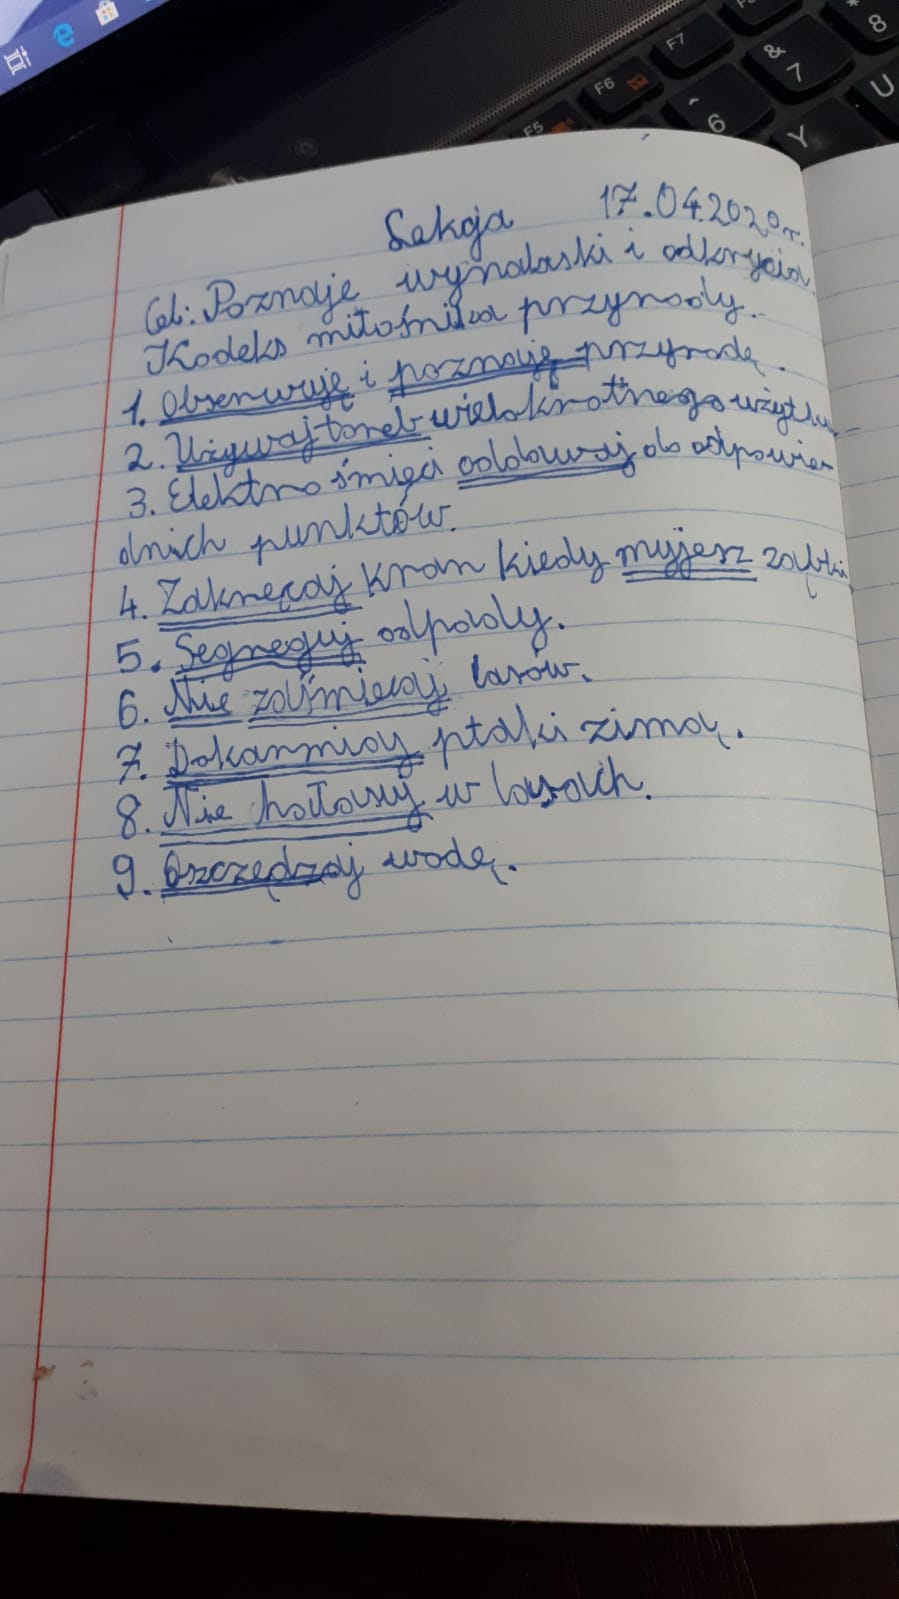 F5 F6 F7
^ 6 & 7 * 8
Y U
Lekcja 17.04.2020r.
Cel: Poznaję wynalaski i odkrycia.
Kodeks miłośnika przyrody.
1. Obserwuję i poznaję przyrodę.
2. Używaj toreb wielokrotnego użytku
3. Elektro śmięci oddawaj do odpowie-
dnich punktów.
4. Zakręcaj kran kiedy myjesz ząbki
5. Segreguj odpady.
6. Nie zaśmiecaj lasów.
7. Dokarmiaj ptaki zimą.
8. Nie hałasuj w lasach.
9. Oszczędzaj wodę.